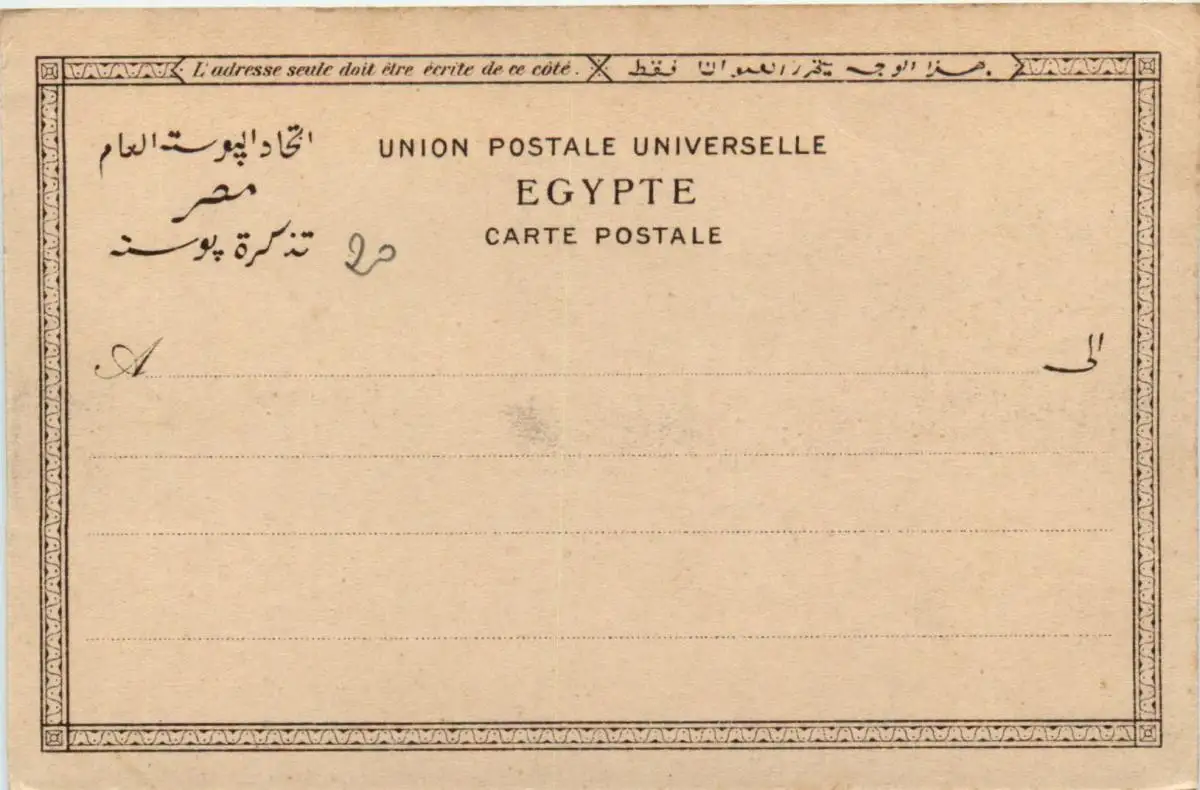 L'adresse seule doit être écrite de ce côté.
هذا الوجه يتحرر العنوان فقط.
اتحاد البوسته العام
مصر
تذكرة پوسته
UNION POSTALE UNIVERSELLE
EGYPTE
CARTE POSTALE
A
الى